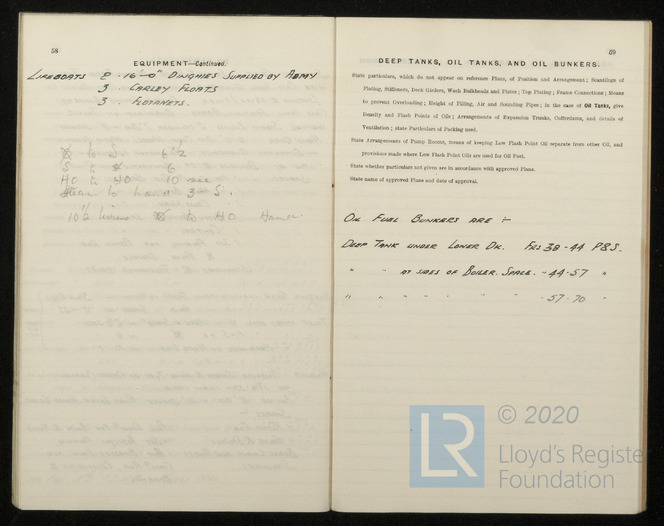 58
EQUIPMENT—Continued.
LIFEBOATS 2 . 16'-0" DINGHIES SUPPLIED BY ARMY
3 . CARLEY FLOATS
3 . FLOTANETS.
to 6½
S to 6
HO to HO 10 sec
Steam to hand 3 S.
10½ to HO Hand
59
DEEP TANKS, OIL TANKS, AND OIL BUNKERS.
State particulars, which do not appear on reference Plans, of Position and Arrangement; Scantlings of
Plating, Stiffeners, Deck Girders, Wash Bulkheads and Plates; Top Plating; Frame Connections; Means
to prevent Overloading; Height of Filling, Air and Sounding Pipes; in the case of Oil Tanks, give
Density and Flash Points of Oils; Arrangements of Expansion Trunks, Cofferdams, and details of
Ventilation; state Particulars of Packing used.
State Arrangements of Pump Rooms, means of keeping Low Flash Point Oil separate from other Oil, and
provisions made where Low Flash Point Oils are used for Oil Fuel.
State whether particulars not given are in accordance with approved Plans.
State name of approved Plans and date of approval.
OIL FUEL BUNKERS ARE :-
DEEP TANK UNDER LOWER DK. FRS 38-44 P&S.
" " AT SIDES OF BOILER SPACE. - 44-57 "
" " " " " " - 57-70 "
© 2020
LR
Lloyd's Register
Foundation